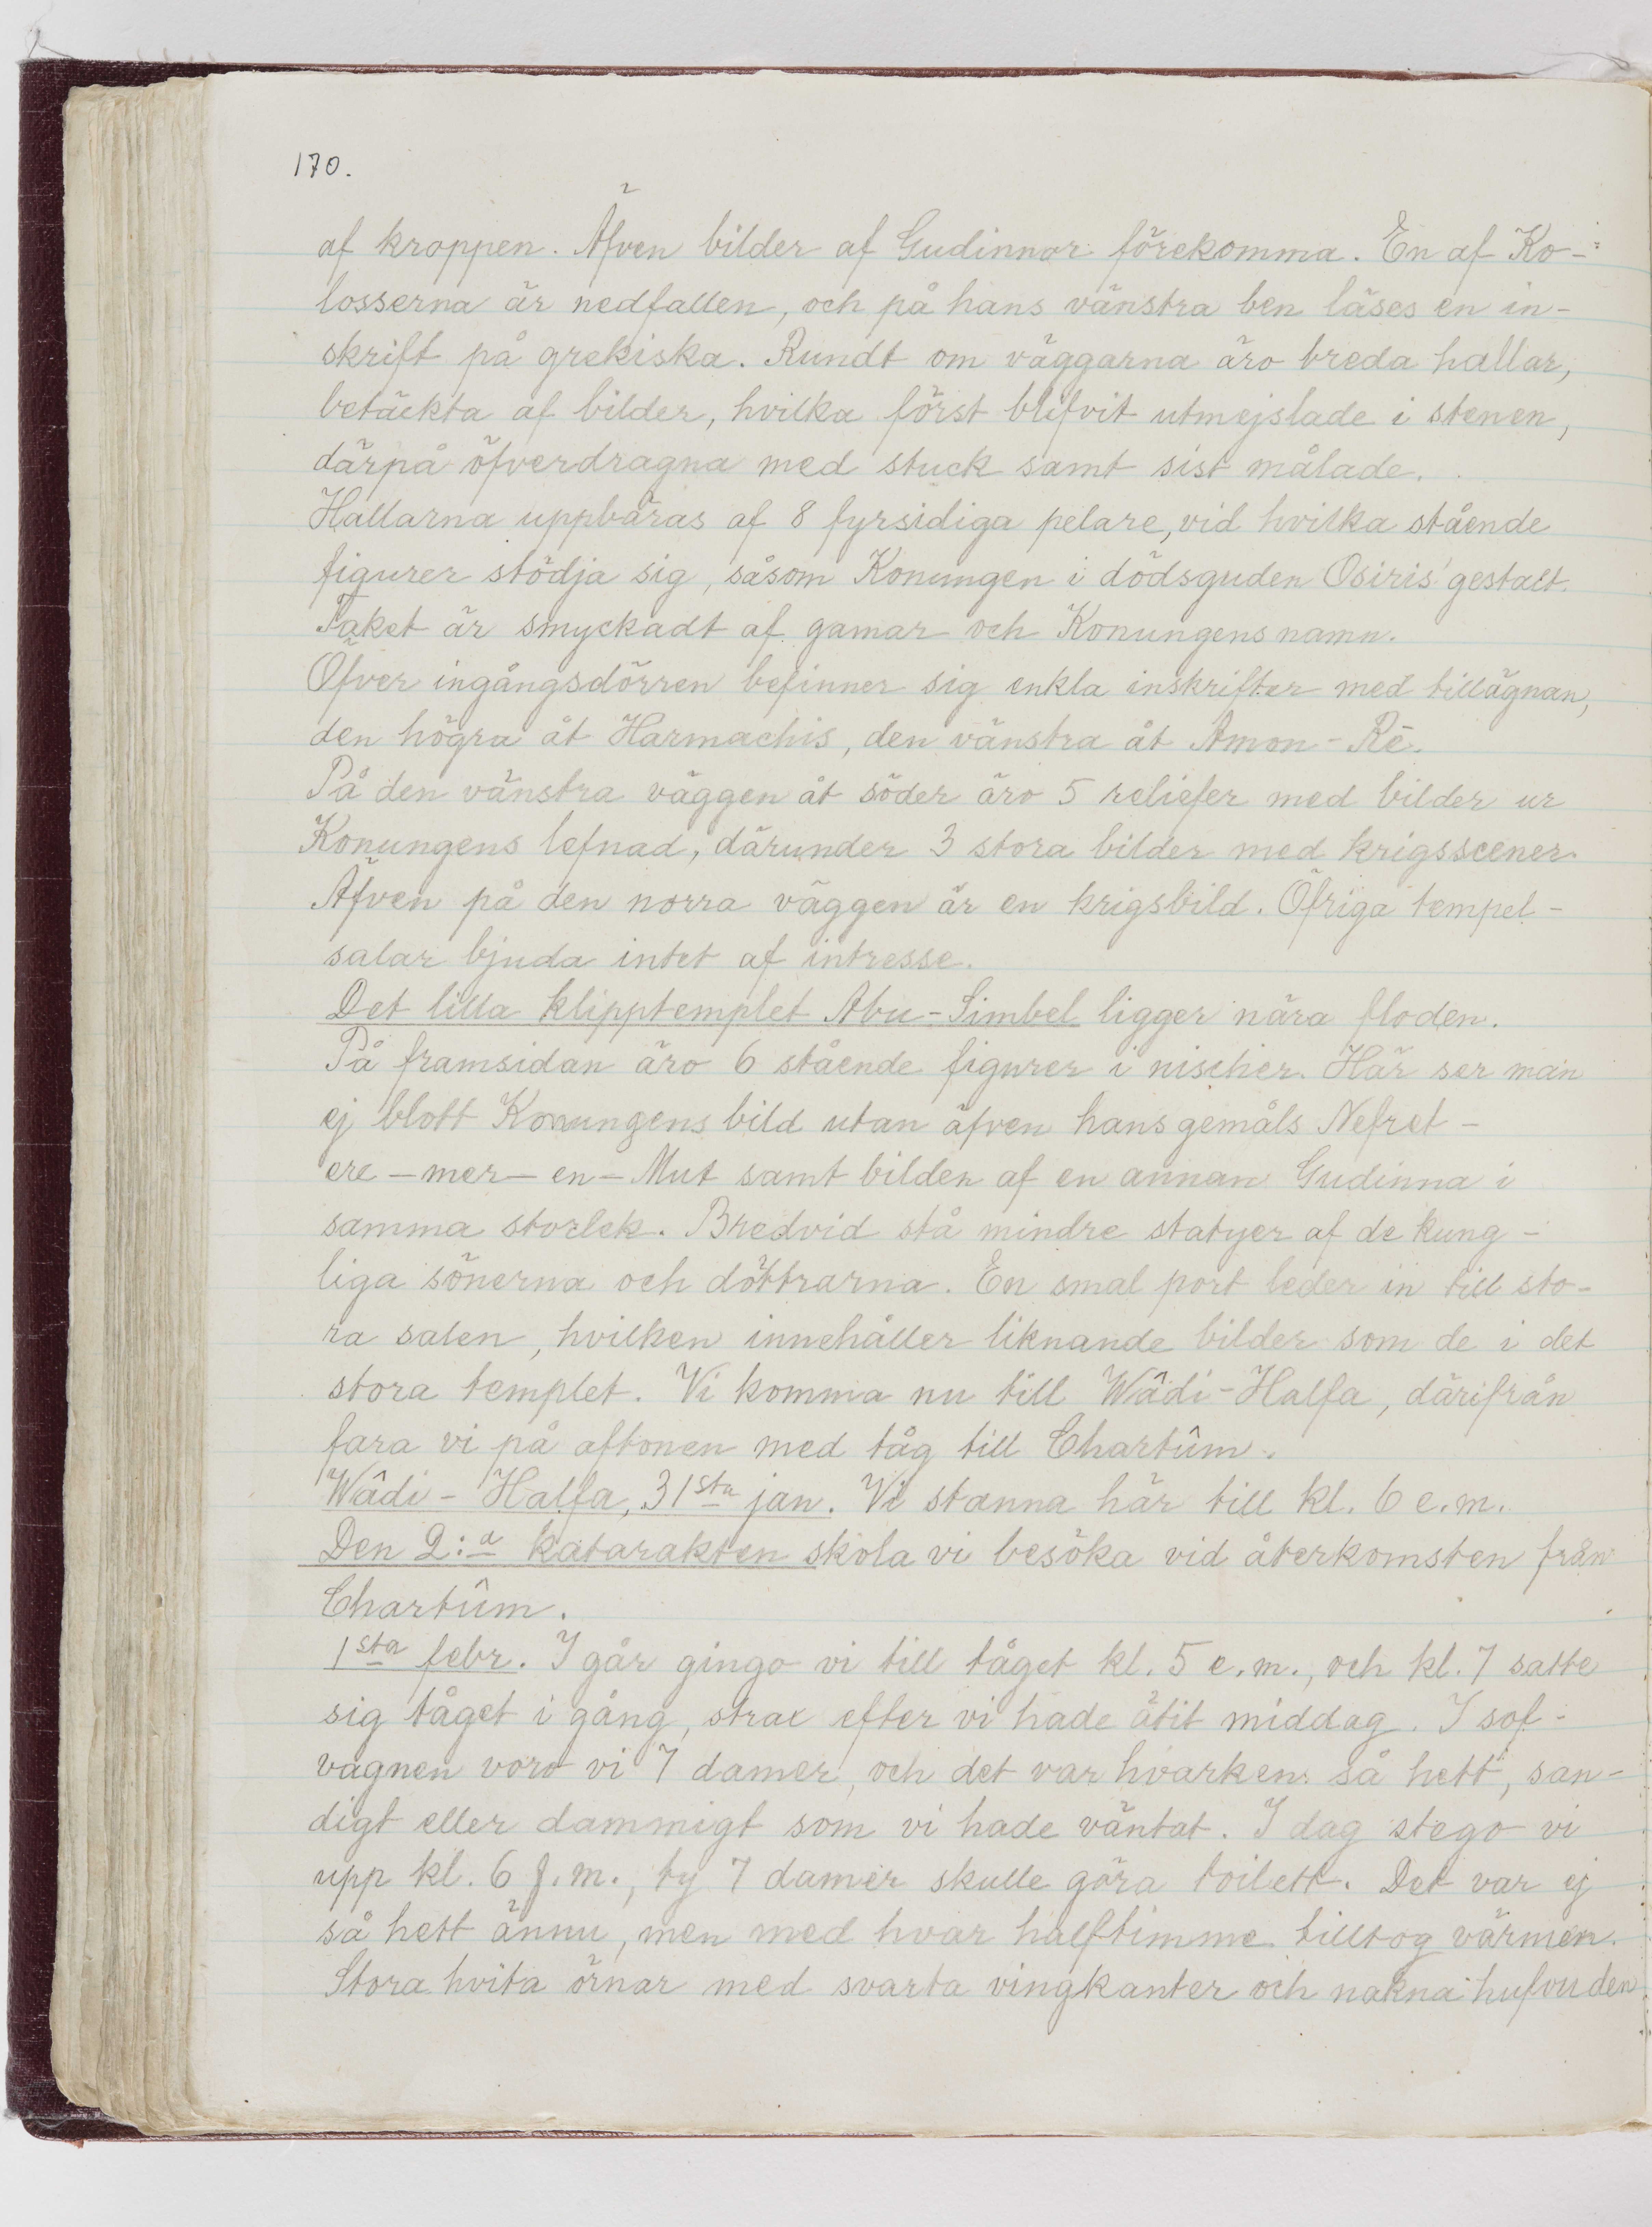 170.
af kroppen. Äfven bilder af Gudinnor förekomma. En af Ko-
losserna är nedfallen, och på hans vänstra ben läses en in-
skrift på grekiska. Rundt om väggarna äro breda hallar,
betäckta af bilder, hvilka först blifvit utmejslade i stenen,
därpå öfverdragna med stuck samt sist målade.
Hallarna uppbäras af 8 fyrsidiga pelare, vid hvilka stående
figurer stödja sig, såsom Konungen i dödsguden Osiris' gestalt.
Taket är smyckadt af gamar och Konungens namn.
Öfver ingångsdörren befinner sig enkla inskrifter med tillägnan,
den högra åt Harmachis, den vänstra åt Amon-Rē.
På den vänstra väggen åt söder äro 5 reliefer med bilder ur
Konungens lefnad, därunder 3 stora bilder med krigsscener.
Äfven på den norra väggen är en krigsbild. Öfriga tempel-
salar bjuda intet af intresse.
Det lilla klipptemplet Abu-Simbel ligger nära floden.
På framsidan äro 6 stående figurer i nischer. Här ser man
ej blott Konungens bild utan äfven hans gemåls Nefret-
ere-mer-en-Mut samt bilden af en annan Gudinna i
samma storlek. Bredvid stå mindre statyer af de kung-
liga sönerna och döttrarna. En smal port leder in till sto-
ra salen, hvilken innehåller liknande bilder som de i det
stora templet. Vi komma nu till Wâdi-Halfa, därifrån
fara vi på aftonen med tåg till Chartûm.
Wâdi-Halfa, 31sta jan. Vi stanna här till kl. 6 e.m.
Den 2:a katarakten skola vi besöka vid återkomsten från
Chartûm.
1sta febr. I går gingo vi till tåget kl. 5 e.m., och kl. 7 satte
sig tåget i gång, strax efter vi hade ätit middag. I sof-
vagnen voro vi 7 damer, och det var hvarken så hett, san-
digt eller dammigt som vi hade väntat. I dag stego vi
upp kl. 6 f.m., ty 7 damer skulle göra toilett. Det var ej
så hett ännu, men med hvar halftimme tilltog värmen.
Stora hvita örnar med svarta vingkanter och nakna hufvuden